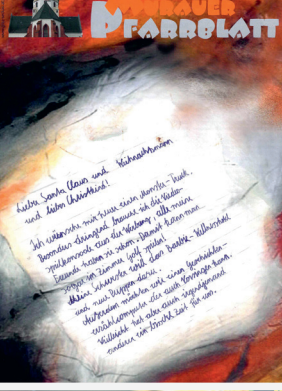 MURAUER
PFARRBLATT
Liebe Santa Claus und Weihnachtsmann
und liebes Christkind!
Ich wünsche mir heuer einen Monster-Truck.
Besonders dringend brauche ich die Video-
spielkonsole aus der Werbung, alle meine
Freunde haben sie schon. Damit kann man
sogar im Zimmer Golf spielen!
Meine Schwester will den Barbie-
und neue Puppen dazu.
Außerdem möchten wir einen Geschichten-
erzählcomputer der auch vorsingen kann.
Vielleicht hat aber auch irgendjemand
anderer ein bisschen Zeit für uns.